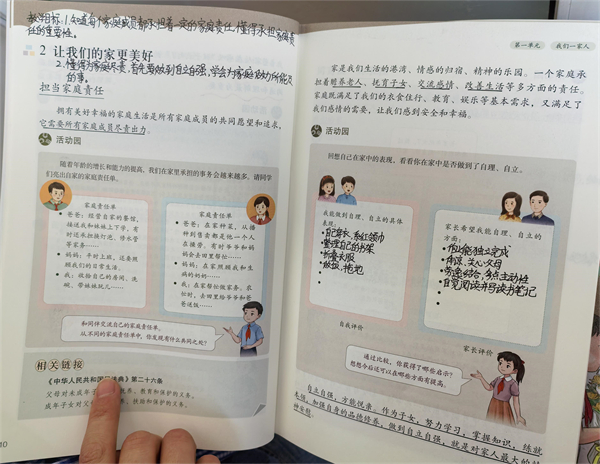 教学目标：1.知道每个家庭成员都承担着一定的家庭责任，懂得承担家庭责
任的重要性。
2 让我们的家更美好
2.懂得为家庭尽责，首先要做到自立自强，学会为家庭做力所能及
的事。
担当家庭责任
拥有美好幸福的家庭生活是所有家庭成员的共同愿望和追求，
它需要所有家庭成员尽责出力。
活动园
随着年龄的增长和能力的提高，我们在家里承担的事务会越来越多。请同学
们列出自家的家庭责任单。
家庭责任单
● 爸爸：经营自家的餐馆，
接送我和妹妹上下学，有
时还承担接打理、修水管
等家务……
● 妈妈：平时上班，还要照
顾我们的日常生活。
● 我：收拾自己的房间、洗
碗、带妹妹玩儿……
家庭责任单
● 爸爸：在家种菜，从播
种到售卖都是他一个人
在操劳，有时爷爷和妈
妈会去田里帮忙……
● 妈妈：在家照顾我和生
病的奶奶……
● 我：在家帮忙做家务，农
忙时，去田里给爷爷和爸
爸送饭……
和同伴交流自己的家庭责任单。
从不同的家庭责任单中，你发现有什么共同之处？
相关链接
《中华人民共和国 法典》第二十六条
父母对未成年子 抚养、教育和保护的义务。
成年子女对父 赡养、扶助和保护的义务。
10
第一单元 我们一家人
家是我们生活的港湾、情感的归宿、精神的乐园。一个家庭承
担着赡养老人、抚育子女、交流情感、改善生活等多方面的责任。
家庭既满足了我们的衣食住行、教育、娱乐等基本需求，又满足了
我们感情的需要，让我们感到安全和幸福。
活动园
回想自己在家中的表现，看看你在家中是否做到了自理、自立。
我能做到自理、自立的具体
表现：
● 自己穿衣、系红领巾
● 整理自己的书架
● 折叠衣服
● 做饭、拖地
●
自我评价
家长希望我能自理、自立的
方面：
● 作业能独立完成
● 体谅、关心父母
● 劳逸结合，多点主动性
● 自觉阅读并写读书笔记
●
家长评价
通过比较，你获得了哪些启示？
想想今后还可以在哪些方面有提高。
自立自强，方能悦亲。作为子女，努力学习，掌握知识，练就
本领，加强自身的品德修养，做到自立自强，就是对家人最大的